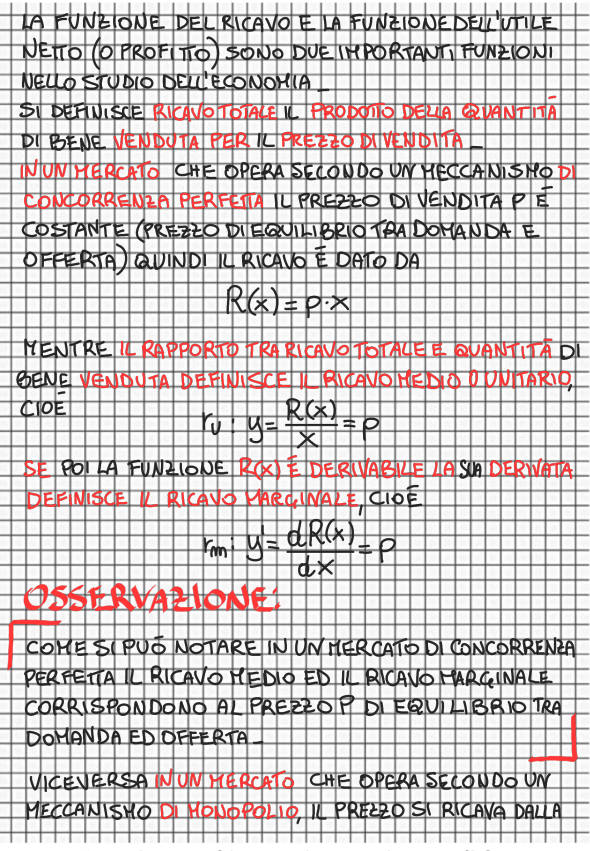 LA FUNZIONE DEL RICAVO E LA FUNZIONE DELL'UTILE
NETTO (O PROFITTO) SONO DUE IMPORTANTI FUNZIONI
NELLO STUDIO DELL'ECONOMIA_
SI DEFINISCE RICAVO TOTALE IL PRODOTTO DELLA QUANTITÀ
DI BENE VENDUTA PER IL PREZZO DI VENDITA_
IN UN MERCATO CHE OPERA SECONDO UN MECCANISMO DI
CONCORRENZA PERFETTA IL PREZZO DI VENDITA P È
COSTANTE (PREZZO DI EQUILIBRIO TRA DOMANDA E
OFFERTA) QUINDI IL RICAVO È DATO DA
R(x) = p·x
MENTRE IL RAPPORTO TRA RICAVO TOTALE E QUANTITÀ DI
BENE VENDUTA DEFINISCE IL RICAVO MEDIO O UNITARIO,
CIOÈ
ru : y = R(x)/x = p
SE POI LA FUNZIONE R(x) È DERIVABILE LA SUA DERIVATA
DEFINISCE IL RICAVO MARGINALE, CIOÈ
rm : y' = dR(x)/dx = p
OSSERVAZIONE:
COME SI PUÒ NOTARE IN UN MERCATO DI CONCORRENZA
PERFETTA IL RICAVO MEDIO ED IL RICAVO MARGINALE
CORRISPONDONO AL PREZZO P DI EQUILIBRIO TRA
DOMANDA ED OFFERTA_
VICEVERSA IN UN MERCATO CHE OPERA SECONDO UN
MECCANISMO DI MONOPOLIO, IL PREZZO SI RICAVA DALLA